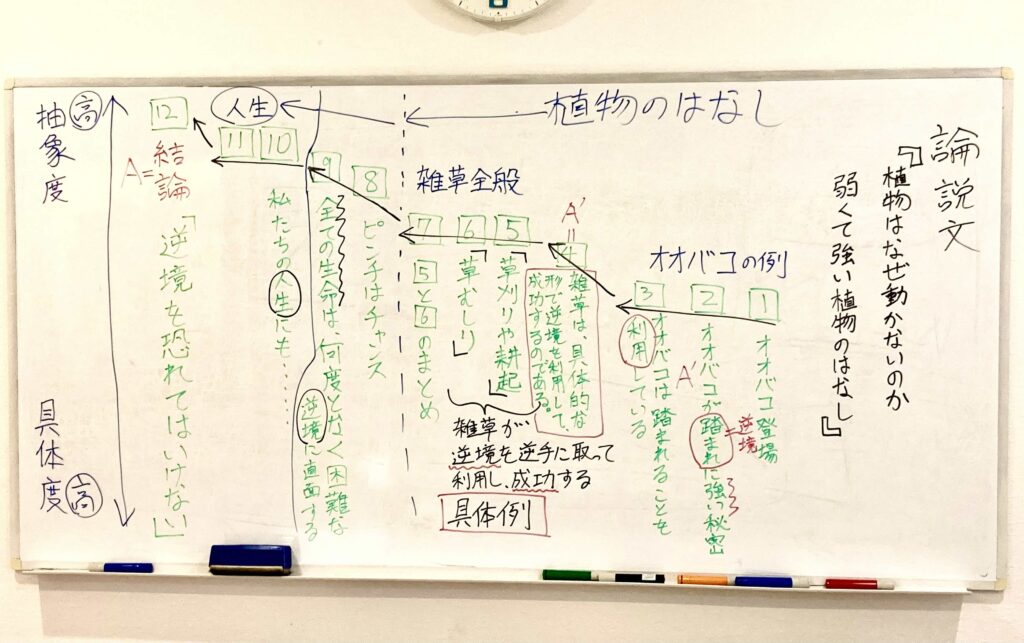 論説文
『植物はなぜ動かないのか
弱くて強い植物のはなし』
植物のはなし
人生
オオバコの例
1
オオバコ登場
2
オオバコが踏まれに強い秘密
=逆境
A'
3
オオバコは踏まれることを
利用している
雑草全般
A'
=
4
雑草は、具体的な
形で逆境を利用して、
成功するのである。
5
「草刈りや耕起」
6
「草むしり」
雑草が…
逆境を逆手に取って
利用し、成功する
具体例
7
5と6のまとめ
8
ピンチはチャンス
9
全ての生命は、何度となく困難な
逆境に直面する
10
11
私たちの人生にも・・・・・
12
A=結論
「逆境を恐れてはいけない」
抽象度高
具体度高